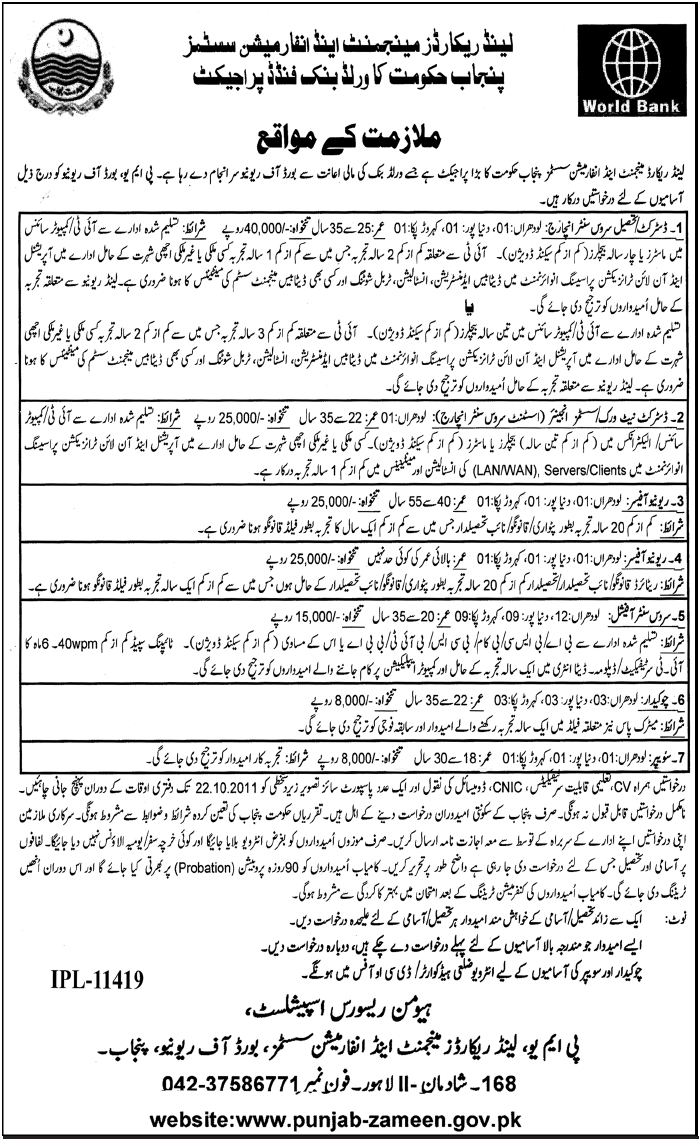 لینڈ ریکارڈز مینجمنٹ اینڈ انفارمیشن سسٹمز
پنجاب حکومت کا ورلڈ بنک فنڈڈ پراجیکٹ
World Bank
ملازمت کے مواقع
لینڈ ریکارڈ مینجمنٹ اینڈ انفارمیشن سسٹمز پنجاب حکومت کا بڑا پراجیکٹ ہے جسے ورلڈ بنک کی مالی اعانت سے بورڈ آف ریونیو سرانجام دے رہا ہے۔ پی ایم یو، بورڈ آف ریونیو کو درج ذیل
آسامیوں کے لئے درخواستیں درکار ہیں۔
1۔ ڈسٹرکٹ/تحصیل سروس سنٹر انچارج: لودھراں:01، دنیا پور:01، کہروڑ پکا:01 عمر:25سے35 سال تنخواہ:-/40,000روپے شرائط: تسلیم شدہ ادارے سے آئی ٹی/کمپیوٹر سائنس
میں ماسٹرز یا چار سالہ بیچلرز (کم از کم سیکنڈ ڈویژن)۔ آئی ٹی سے متعلقہ کم از کم 2 سالہ تجربہ جس میں سے کم از کم 1 سالہ تجربہ کسی ملکی یا غیر ملکی اچھی شہرت کے حامل ادارے میں آپریشنل
اینڈ آن لائن ٹرانزیکشن پراسیسنگ انوائرنمنٹ میں ڈیٹابیس ایڈمنسٹریشن، انسٹالیشن، ٹربل شوٹنگ اور کسی بھی ڈیٹابیس مینجمنٹ سسٹم کی مینٹیننس کا ہونا ضروری ہے۔ لینڈ ریونیو سے متعلقہ تجربہ
کے حامل اُمیدواروں کو ترجیح دی جائے گی۔ یا
تسلیم شدہ ادارے سے آئی ٹی/کمپیوٹر سائنس میں تین سالہ بیچلرز (کم از کم سیکنڈ ڈویژن)۔ آئی ٹی سے متعلقہ کم از کم 3 سالہ تجربہ جس میں سے کم از کم 2 سالہ تجربہ کسی ملکی یا غیر ملکی اچھی
شہرت کے حامل ادارے میں آپریشنل اینڈ آن لائن ٹرانزیکشن پراسیسنگ انوائرنمنٹ میں ڈیٹابیس ایڈمنسٹریشن، انسٹالیشن، ٹربل شوٹنگ اور کسی بھی ڈیٹابیس مینجمنٹ سسٹم کی مینٹیننس کا ہونا
ضروری ہے۔ لینڈ ریونیو سے متعلقہ تجربہ کے حامل اُمیدواروں کو ترجیح دی جائے گی۔
2۔ ڈسٹرکٹ نیٹ ورک/سسٹمز انجینئر (اسسٹنٹ سروس سنٹر انچارج): لودھراں:01 عمر:22سے35 سال تنخواہ:-/25,000 روپے شرائط: تسلیم شدہ ادارے سے آئی ٹی/کمپیوٹر
سائنس/الیکٹرانکس میں (کم از کم تین سالہ) بیچلرز یا ماسٹرز (کم از کم سیکنڈ ڈویژن)۔ کسی ملکی یا غیر ملکی اچھی شہرت کے حامل ادارے میں آپریشنل اینڈ آن لائن ٹرانزیکشن پراسیسنگ
انوائرنمنٹ میں (LAN/WAN), Servers/Clients کی انسٹالیشن اور مینٹیننس میں کم از کم 1 سالہ تجربہ درکار ہے۔
3۔ ریونیو آفیسر: لودھراں:01، دنیا پور:01، کہروڑ پکا:01 عمر:40سے55 سال تنخواہ:-/25,000 روپے
شرائط: کم از کم 20 سالہ تجربہ بطور پٹواری/قانونگو/نائب تحصیلدار جس میں سے کم از کم ایک سال کا تجربہ بطور فیلڈ قانونگو ہونا ضروری ہے۔
4۔ ریونیو آفیسر: لودھراں:01، دنیا پور:01، کہروڑ پکا:01 عمر: بالائی عمر کی کوئی حد نہیں تنخواہ:-/25,000 روپے
شرائط: ریٹائرڈ قانونگو/نائب تحصیلدار/تحصیلدار کم از کم 20 سالہ تجربہ بطور پٹواری/قانونگو/نائب تحصیلدار کے حامل ہوں جس میں سے کم از کم ایک سالہ تجربہ بطور فیلڈ قانونگو ہونا ضروری ہے۔
5۔ سروس سنٹر آفیشل: لودھراں:12، دنیا پور:09، کہروڑ پکا:09 عمر:20سے35 سال تنخواہ:-/15,000 روپے
شرائط: تسلیم شدہ ادارے سے بی اے/بی ایس سی/بی کام/بی سی ایس/بی آئی ٹی/بی بی اے یا اس کے مساوی (کم از کم سیکنڈ ڈویژن)۔ ٹائپنگ سپیڈ کم از کم 40wpm۔ 6ماہ کا
آئی۔ٹی سرٹیفکیٹ/ڈپلومہ۔ ڈیٹا انٹری میں ایک سالہ تجربہ کے حامل اور کمپیوٹر ایپلیکیشن پر کام جاننے والے امیدواروں کو ترجیح دی جائے گی۔
6۔ چوکیدار: لودھراں:03، دنیا پور:03، کہروڑ پکا:03 عمر:22سے35 سال تنخواہ:-/8,000 روپے
شرائط: میٹرک پاس نیز متعلقہ فیلڈ میں ایک سالہ تجربہ رکھنے والے امیدوار اور سابقہ فوجی کو ترجیح دی جائے گی۔
7۔ سویپر: لودھراں:01، دنیا پور:01، کہروڑ پکا:01 عمر:18سے30 سال تنخواہ:-/8,000 روپے شرائط: تجربہ کار امیدوار کو ترجیح دی جائے گی۔
درخواستیں ہمراہ CV، تعلیمی قابلیت سرٹیفکیٹس، CNIC، ڈومیسائل کی نقول اور ایک عدد پاسپورٹ سائز تصویر زیر دستخطی کو 22.10.2011 تک دفتری اوقات کے دوران پہنچ جانی چاہئیں۔
نامکمل درخواستیں قابل قبول نہ ہونگی۔ صرف پنجاب کے سکونتی امیدوار ان درخواست دینے کے اہل ہیں۔ تقرریاں حکومت پنجاب کی تعین کردہ شرائط و ضوابط سے مشروط ہونگی۔ سرکاری ملازمین
اپنی درخواستیں اپنے ادارے کے سربراہ کے توسط سے معہ اجازت نامہ ارسال کریں۔ صرف موزوں اُمیدواروں کو بغرض انٹرویو بلایا جائیگا اور کوئی خرچہ سفر/یومیہ الاؤنس نہیں دیا جائیگا۔ لفافوں
پر آسامی اور تحصیل جس کے لئے درخواست دی جا رہی ہے واضح طور پر تحریر کریں۔ کامیاب اُمیدواروں کو 90روزہ پروبیشن (Probation) پر بھرتی کیا جائے گا اور اس دوران انھیں
ٹریننگ دی جائے گی۔ کامیاب اُمیدواروں کی کنفرمیشن ٹریننگ کے بعد امتحان میں بہتر کارکردگی سے مشروط ہوگی۔
نوٹ: ایک سے زائد تحصیل/آسامی کے خواہش مند امیدوار ہر تحصیل/آسامی کے لئے علیحدہ درخواست دیں۔
ایسے امیدوار جو مندرجہ بالا آسامیوں کے لئے پہلے درخواست دے چکے ہیں، دوبارہ درخواست نہ دیں۔
چوکیدار اور سویپر کی آسامیوں کے لیے انٹرویو ضلعی ہیڈکوارٹر/ڈی سی او آفس میں ہونگے۔
IPL-11419
ہیومن ریسورس اسپیشلسٹ،
پی ایم یو، لینڈ ریکارڈز مینجمنٹ اینڈ انفارمیشن سسٹمز، بورڈ آف ریونیو، پنجاب۔
168۔ شادمان-II لاہور۔ فون نمبر 042-37586771
website:www.punjab-zameen.gov.pk